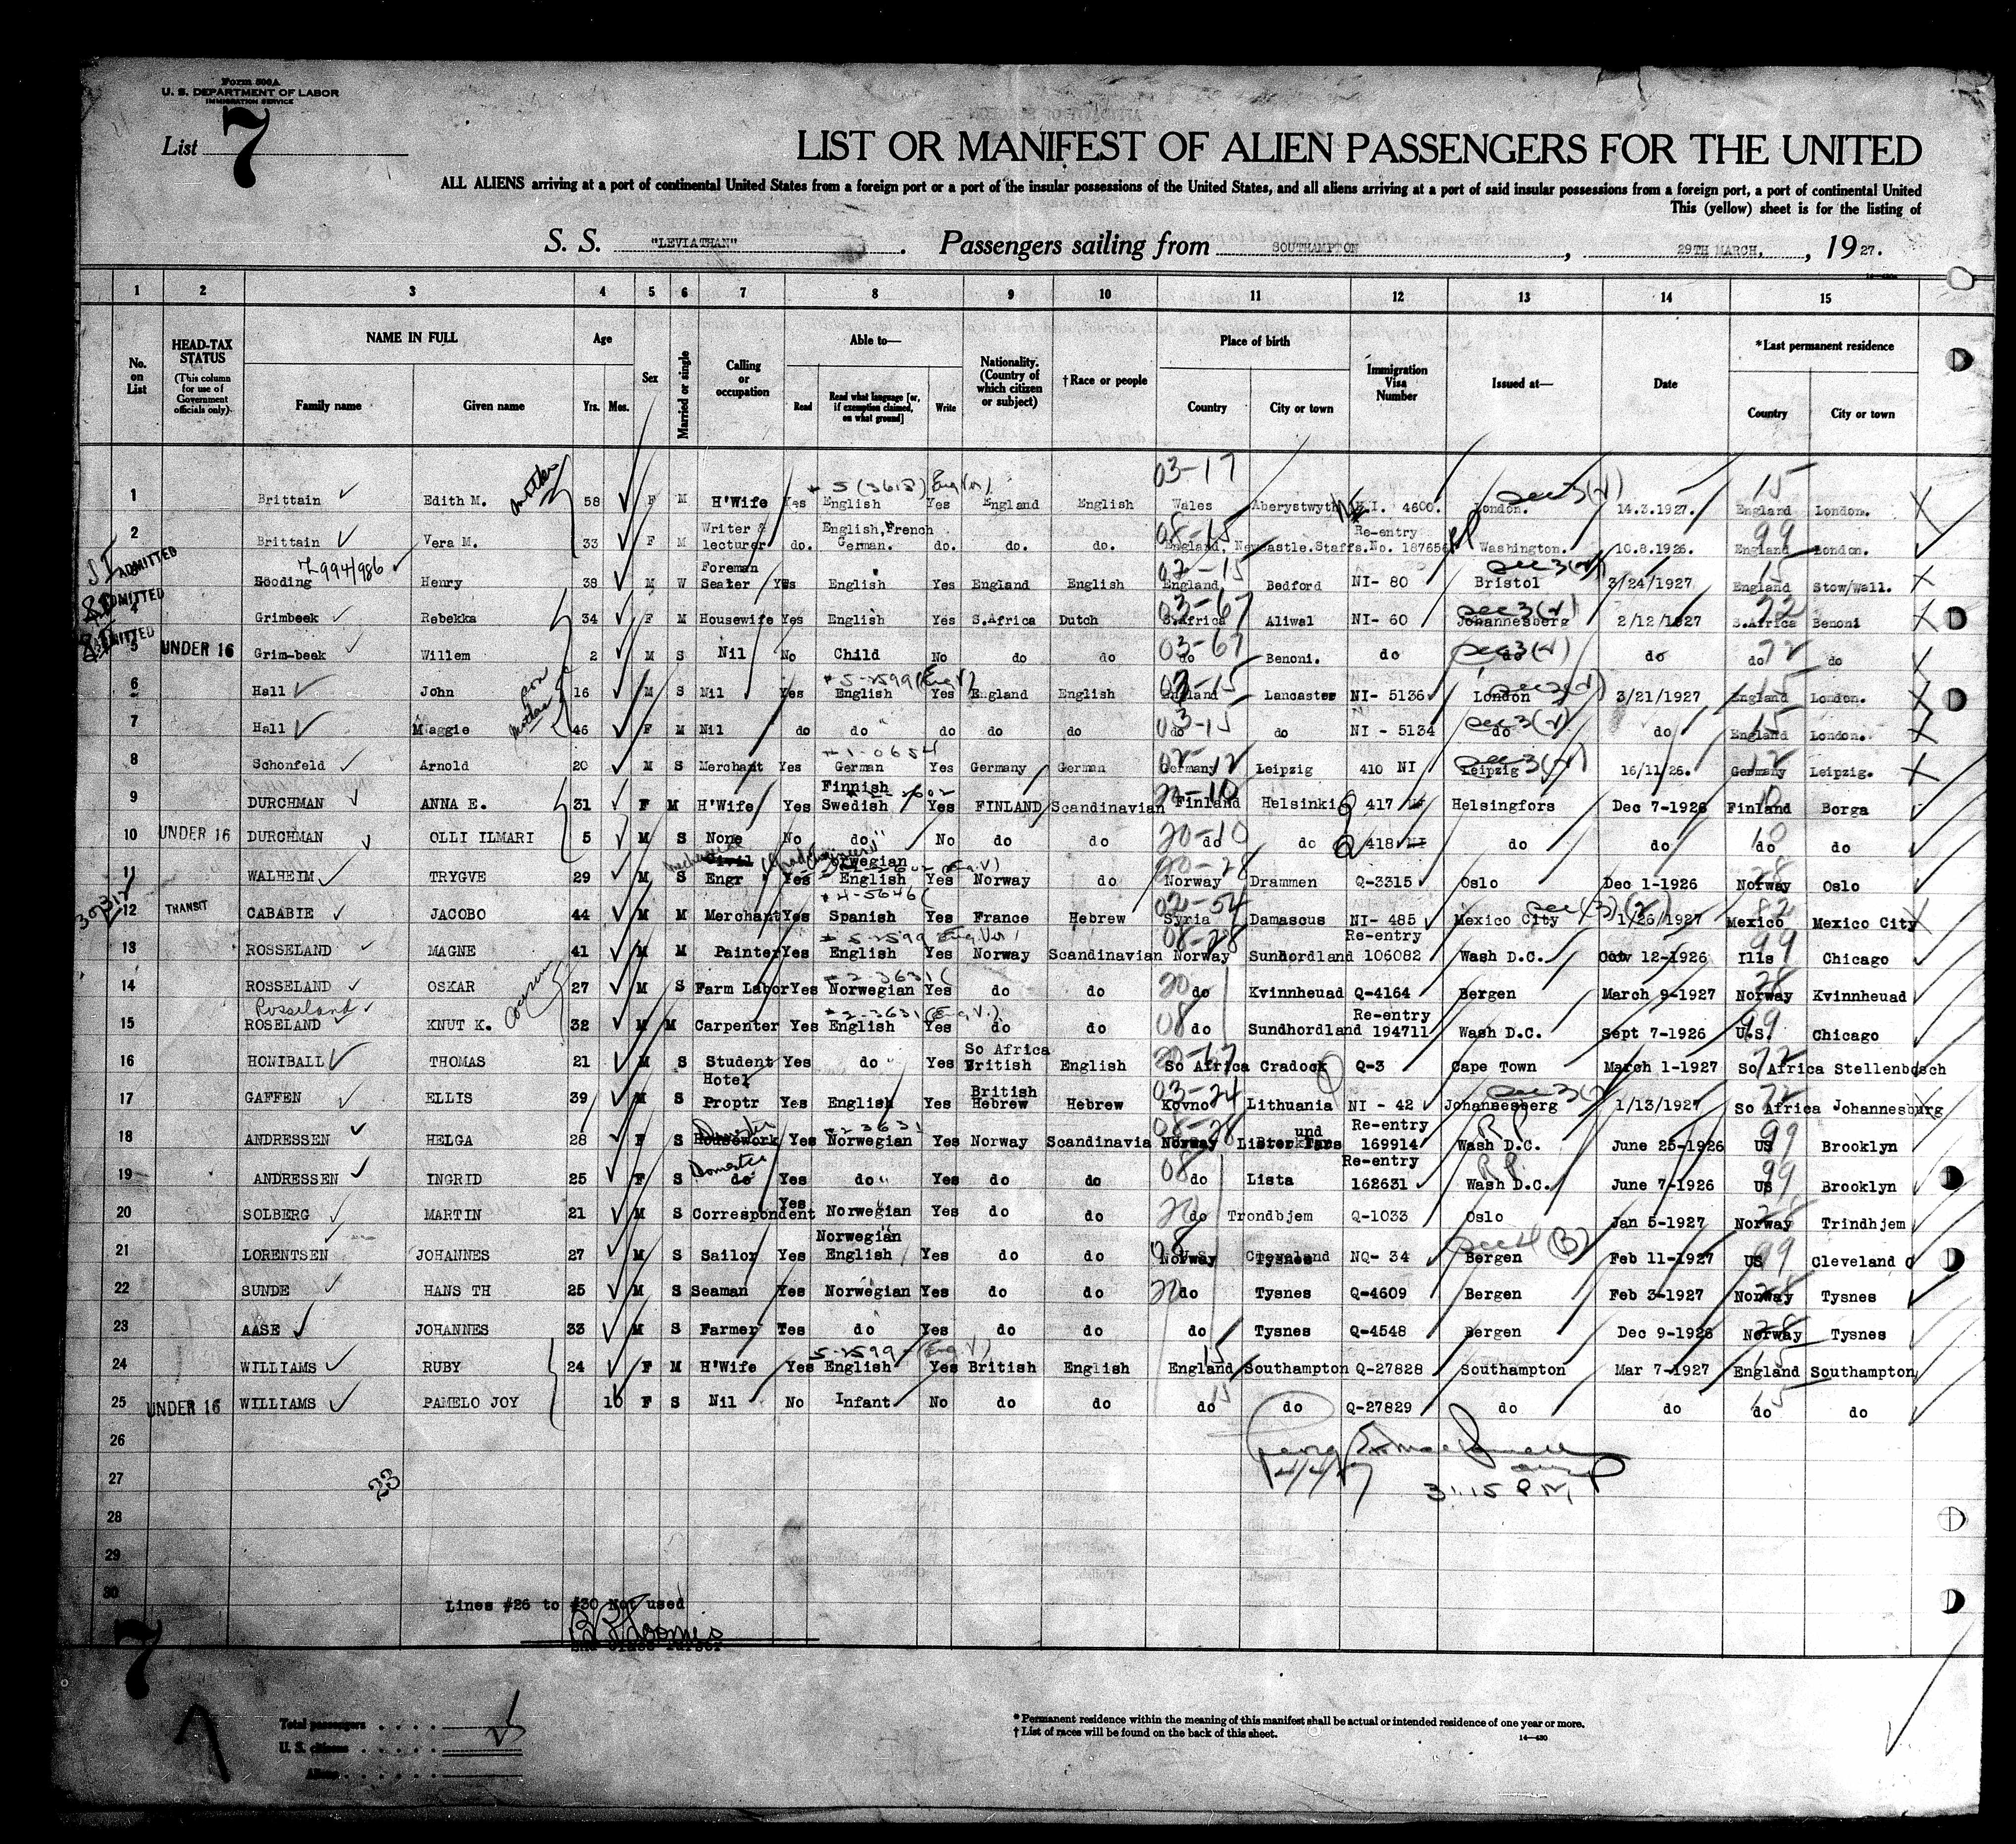 Form 500A
U. S. DEPARTMENT OF LABOR
IMMIGRATION SERVICE
List 7
LIST OR MANIFEST OF ALIEN PASSENGERS FOR THE UNITED
ALL ALIENS arriving at a port of continental United States from a foreign port or a port of the insular possessions of the United States, and all aliens arriving at a port of said insular possessions from a foreign port, a port of continental United
This (yellow) sheet is for the listing of
S. S. "LEVIATHAN". Passengers sailing from SOUTHAMPTON, 29TH MARCH, 1927.
1 2 3 4 5 6 7 8 9 10 11 12 13 14 15
No. on List
HEAD-TAX STATUS (This column for use of Government officials only).
NAME IN FULL
Family name Given name
Age
Yrs. Mos.
Sex
Married or single
Calling or occupation
Able to—
Read Read what language [or, if exemption claimed, on what ground] Write
Nationality. (Country of which citizen or subject)
†Race or people
Place of birth
Country City or town
Immigration Visa Number
Issued at—
Date
*Last permanent residence
Country City or town
03-17 15
mother 5 (3618)
1 Brittain Edith M. 58 F M H'Wife Yes English Yes England English Wales Aberystwyth N.I. 4600. London. 14.3.1927. England London.
Writer & English, French Re-entry 08-15 99
2 Brittain Vera M. 33 F M lecturer do. German. do. do. do. England, Newcastle.Staffs. No. 187656 Washington. 10.8.1926. England London.
SI ADMITTED 7994/986 Foreman 02-15
3 Gooding Henry 38 M W Seater Yes English Yes England English England Bedford NI- 80 Bristol 3/24/1927 England Stow/Wall.
ADMITTED 03-67 72
4 Grimbeek Rebekka 34 F M Housewife Yes English Yes S.Africa Dutch S.Africa Aliwal NI- 60 Johannesberg 2/12/1927 S.Africa Benoni
03-67 72
5 UNDER 16 Grim-beek Willem 2 M S Nil No Child No do do do Benoni. do do do do do
son 5-2599 (Eng V) 03-15 15
6 Hall John 16 M S Nil Yes English Yes England English England Lancaster NI- 5136 London 3/21/1927 England London.
mother 03-15 15
7 Hall Maggie 46 F M Nil do do do do do do do NI - 5134 do do England London.
1-0654 02-12 12
8 Schonfeld Arnold 20 M S Merchant Yes German Yes Germany German Germany Leipzig 410 NI Leipzig 16/11/26. Germany Leipzig.
Finnish 20-10
9 DURCHMAN ANNA E. 31 F M H'Wife Yes Swedish Yes FINLAND Scandinavian Finland Helsinki Q 417 Helsingfors Dec 7-1926 Finland Borga
20-10 10
10 UNDER 16 DURCHMAN OLLI ILMARI 5 M S None No do No do do do do Q 418 do do do do
Civil Norwegian 20-28 28
11 WALHEIM TRYGVE 29 M S Engr Yes English Yes Norway do Norway Drammen Q-3315 Oslo Dec 1-1926 Norway Oslo
4-5646 02-54 82
12 TRANSIT CABABIE JACOBO 44 M M Merchant Yes Spanish Yes France Hebrew Syria Damascus NI- 485 Mexico City 1/26/1927 Mexico Mexico City
5-2599 Eng. Ver Re-entry 08-28 99
13 ROSSELAND MAGNE 41 M M Painter Yes English Yes Norway Scandinavian Norway Sundhordland 106082 Wash D.C. 12-1926 Ills Chicago
cousins 2-3631 20 28
14 ROSSELAND OSKAR 27 M S Farm Labor Yes Norwegian Yes do do do Kvinnheuad Q-4164 Bergen March 9-1927 Norway Kvinnheuad
Rosseland 2-3631 (Eng. V.) 08 Re-entry 99
15 ROSELAND KNUT K. 32 M M Carpenter Yes English Yes do do do Sundhordland 194711 Wash D.C. Sept 7-1926 U.S. Chicago
So Africa 20-67 72
16 HONIBALL THOMAS 21 M S Student Yes do Yes British English So Africa Cradock Q-3 Cape Town March 1-1927 So Africa Stellenbosch
Hotel British 03-24 72
17 GAFFEN ELLIS 39 M S Proptr Yes English Yes Hebrew Hebrew Kovno Lithuania NI - 42 Johannesberg 1/13/1927 So Africa Johannesburg
Domestic 2-3631 08-28 und Re-entry 99
18 ANDRESSEN HELGA 28 F S Housework Yes Norwegian Yes Norway Scandinavia Norway Lister 169914 Wash D.C. June 25-1926 US Brooklyn
Domestic 08 Re-entry 99
19 ANDRESSEN INGRID 25 F S do Yes do Yes do do do Lista 162631 Wash D.C. June 7-1926 US Brooklyn
20 28
20 SOLBERG MARTIN 21 M S Correspondent Yes Norwegian Yes do do do Trondbjem Q-1033 Oslo Jan 5-1927 Norway Trindhjem
Norwegian 08 99
21 LORENTSEN JOHANNES 27 M S Sailor Yes English Yes do do Norway Tysnes NQ- 34 Bergen Feb 11-1927 US Cleveland O
20 28
22 SUNDE HANS TH 25 M S Seaman Yes Norwegian Yes do do do Tysnes Q-4609 Bergen Feb 3-1927 Norway Tysnes
28
23 AASE JOHANNES 33 M S Farmer Yes do Yes do do do Tysnes Q-4548 Bergen Dec 9-1926 Norway Tysnes
5-2599 (Eng. V.) 15 15
24 WILLIAMS RUBY 24 F M H'Wife Yes English Yes British English England Southampton Q-27828 Southampton Mar 7-1927 England Southampton
15 15
25 UNDER 16 WILLIAMS PAMELO JOY 10 F S Nil No Infant No do do do do Q-27829 do do do do
26
27
23
4/4/27 3:15 PM
28
29
30
Lines #26 to #30 Not used
2nd Class Purser
7
Total passengers
U. S. citizens
Aliens
* Permanent residence within the meaning of this manifest shall be actual or intended residence of one year or more.
† List of races will be found on the back of this sheet.
14—430